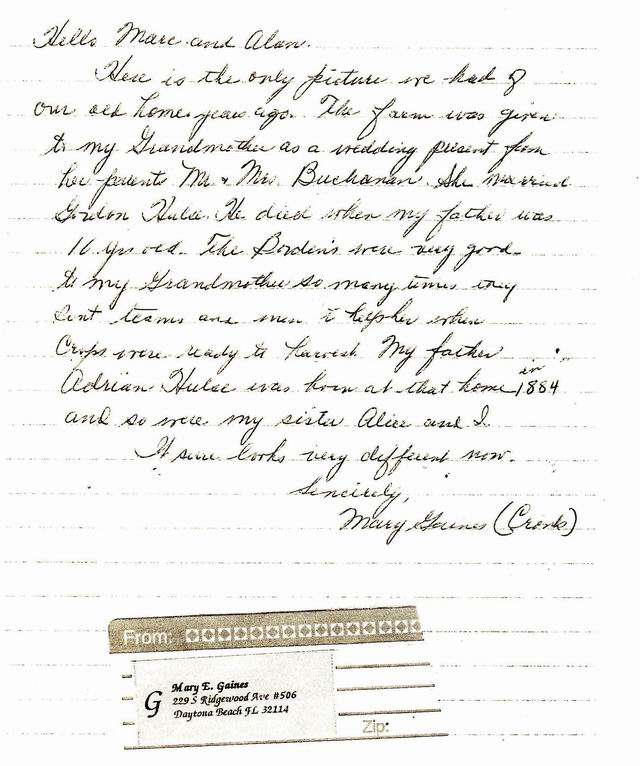 Hello Marc and Alan.
Here is the only picture we had of
our old home years ago. The farm was given
to my Grandmother as a wedding present from
her parents Mr & Mrs. Buchanan. She married
Gordon Hulse. He died when my father was
16 yrs old. The Borden's were very good
to my Grandmother so many times they
sent teams and men to help her when
Crops were ready to harvest. My father
Adrian Hulse was born at that home in 1884
and so were my sister Alice and I.
It sure looks very different now.
Sincirely,
Mary Gaines (Cronk)
From:
G
Mary E. Gaines
229 S Ridgewood Ave #506
Daytona Beach FL 32114
Zip: